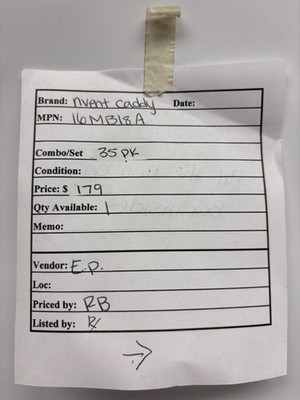 Brand: nvent caddy Date:
MPN: 16MB18A
Combo/Set 35 pk
Condition:
Price: $ 179
Qty Available: 1
Memo:
Vendor: E.p.
Loc:
Priced by: RB
Listed by: